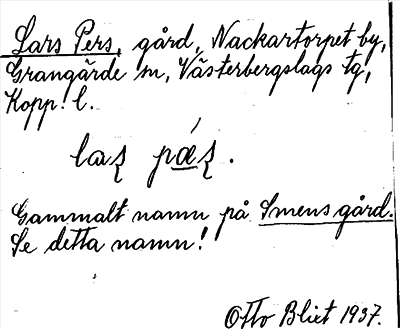 Lars Pers, gård, Nackartorpet by,
Grangärde sn, Västerbergslags tg,
Kopp. l.
Gammalt namn på Smens gård.
Se detta namn!
Otto Blixt 1937.